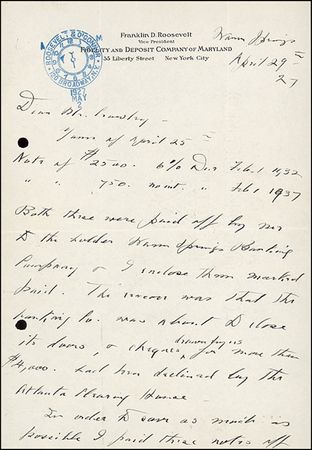 Franklin D. Roosevelt
Vice President
Fidelity and Deposit Company of Maryland
55 Liberty Street New York City
ROOSEVELT & O'CONNOR
120 BROADWAY, N.Y.
1927
MAY
2
Warm Springs
April 29th
27
Dear Mr.
Yours of April 25th
Note of $2500. 6% Due Feb. 1 1932
" " 750. no int. " Feb 1 1937
Both these were paid off by me
to the holder Warm Springs Banking
Company & I inclose them marked
paid. The reason was that the
banking Co. was about to close
its doors, & cheques drawn by us for more than
$4,000. had been declined by the
Atlanta Clearing House.
In order to save as much as
possible I paid these notes off